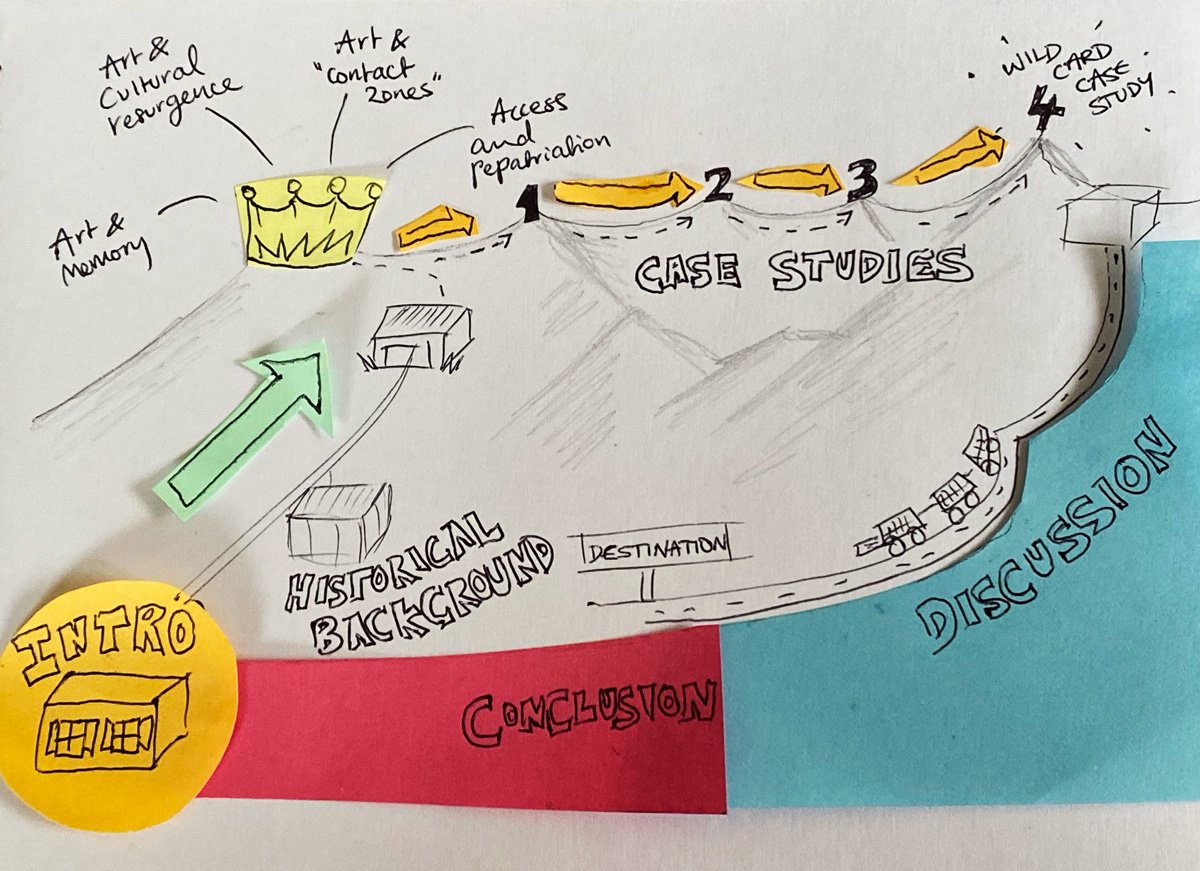 Art &
Cultural
resurgence
Art &
"contact
zones"
Access
and
repatriation
Art &
Memory
1
2
3
4
WILD
CARD
CASE
STUDY
CASE STUDIES
HISTORICAL
BACKGROUND
DESTINATION
DISCUSSION
INTRO
CONCLUSION